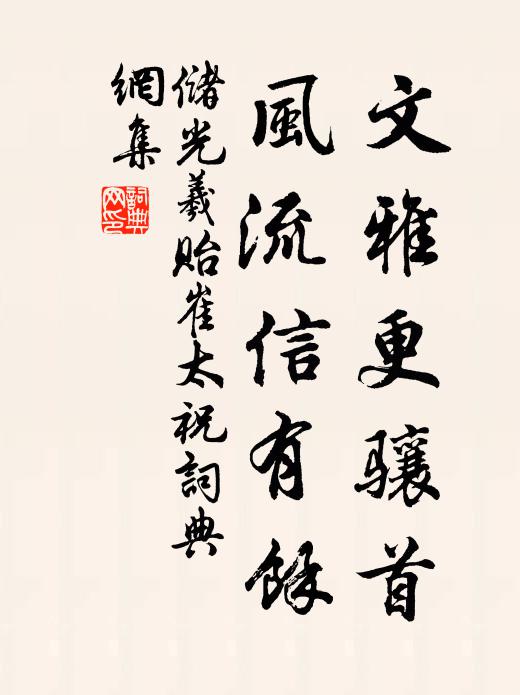 文雅更骧首
風流信有餘
儲光羲貽崔太祝詞典
網集
詞典
网印